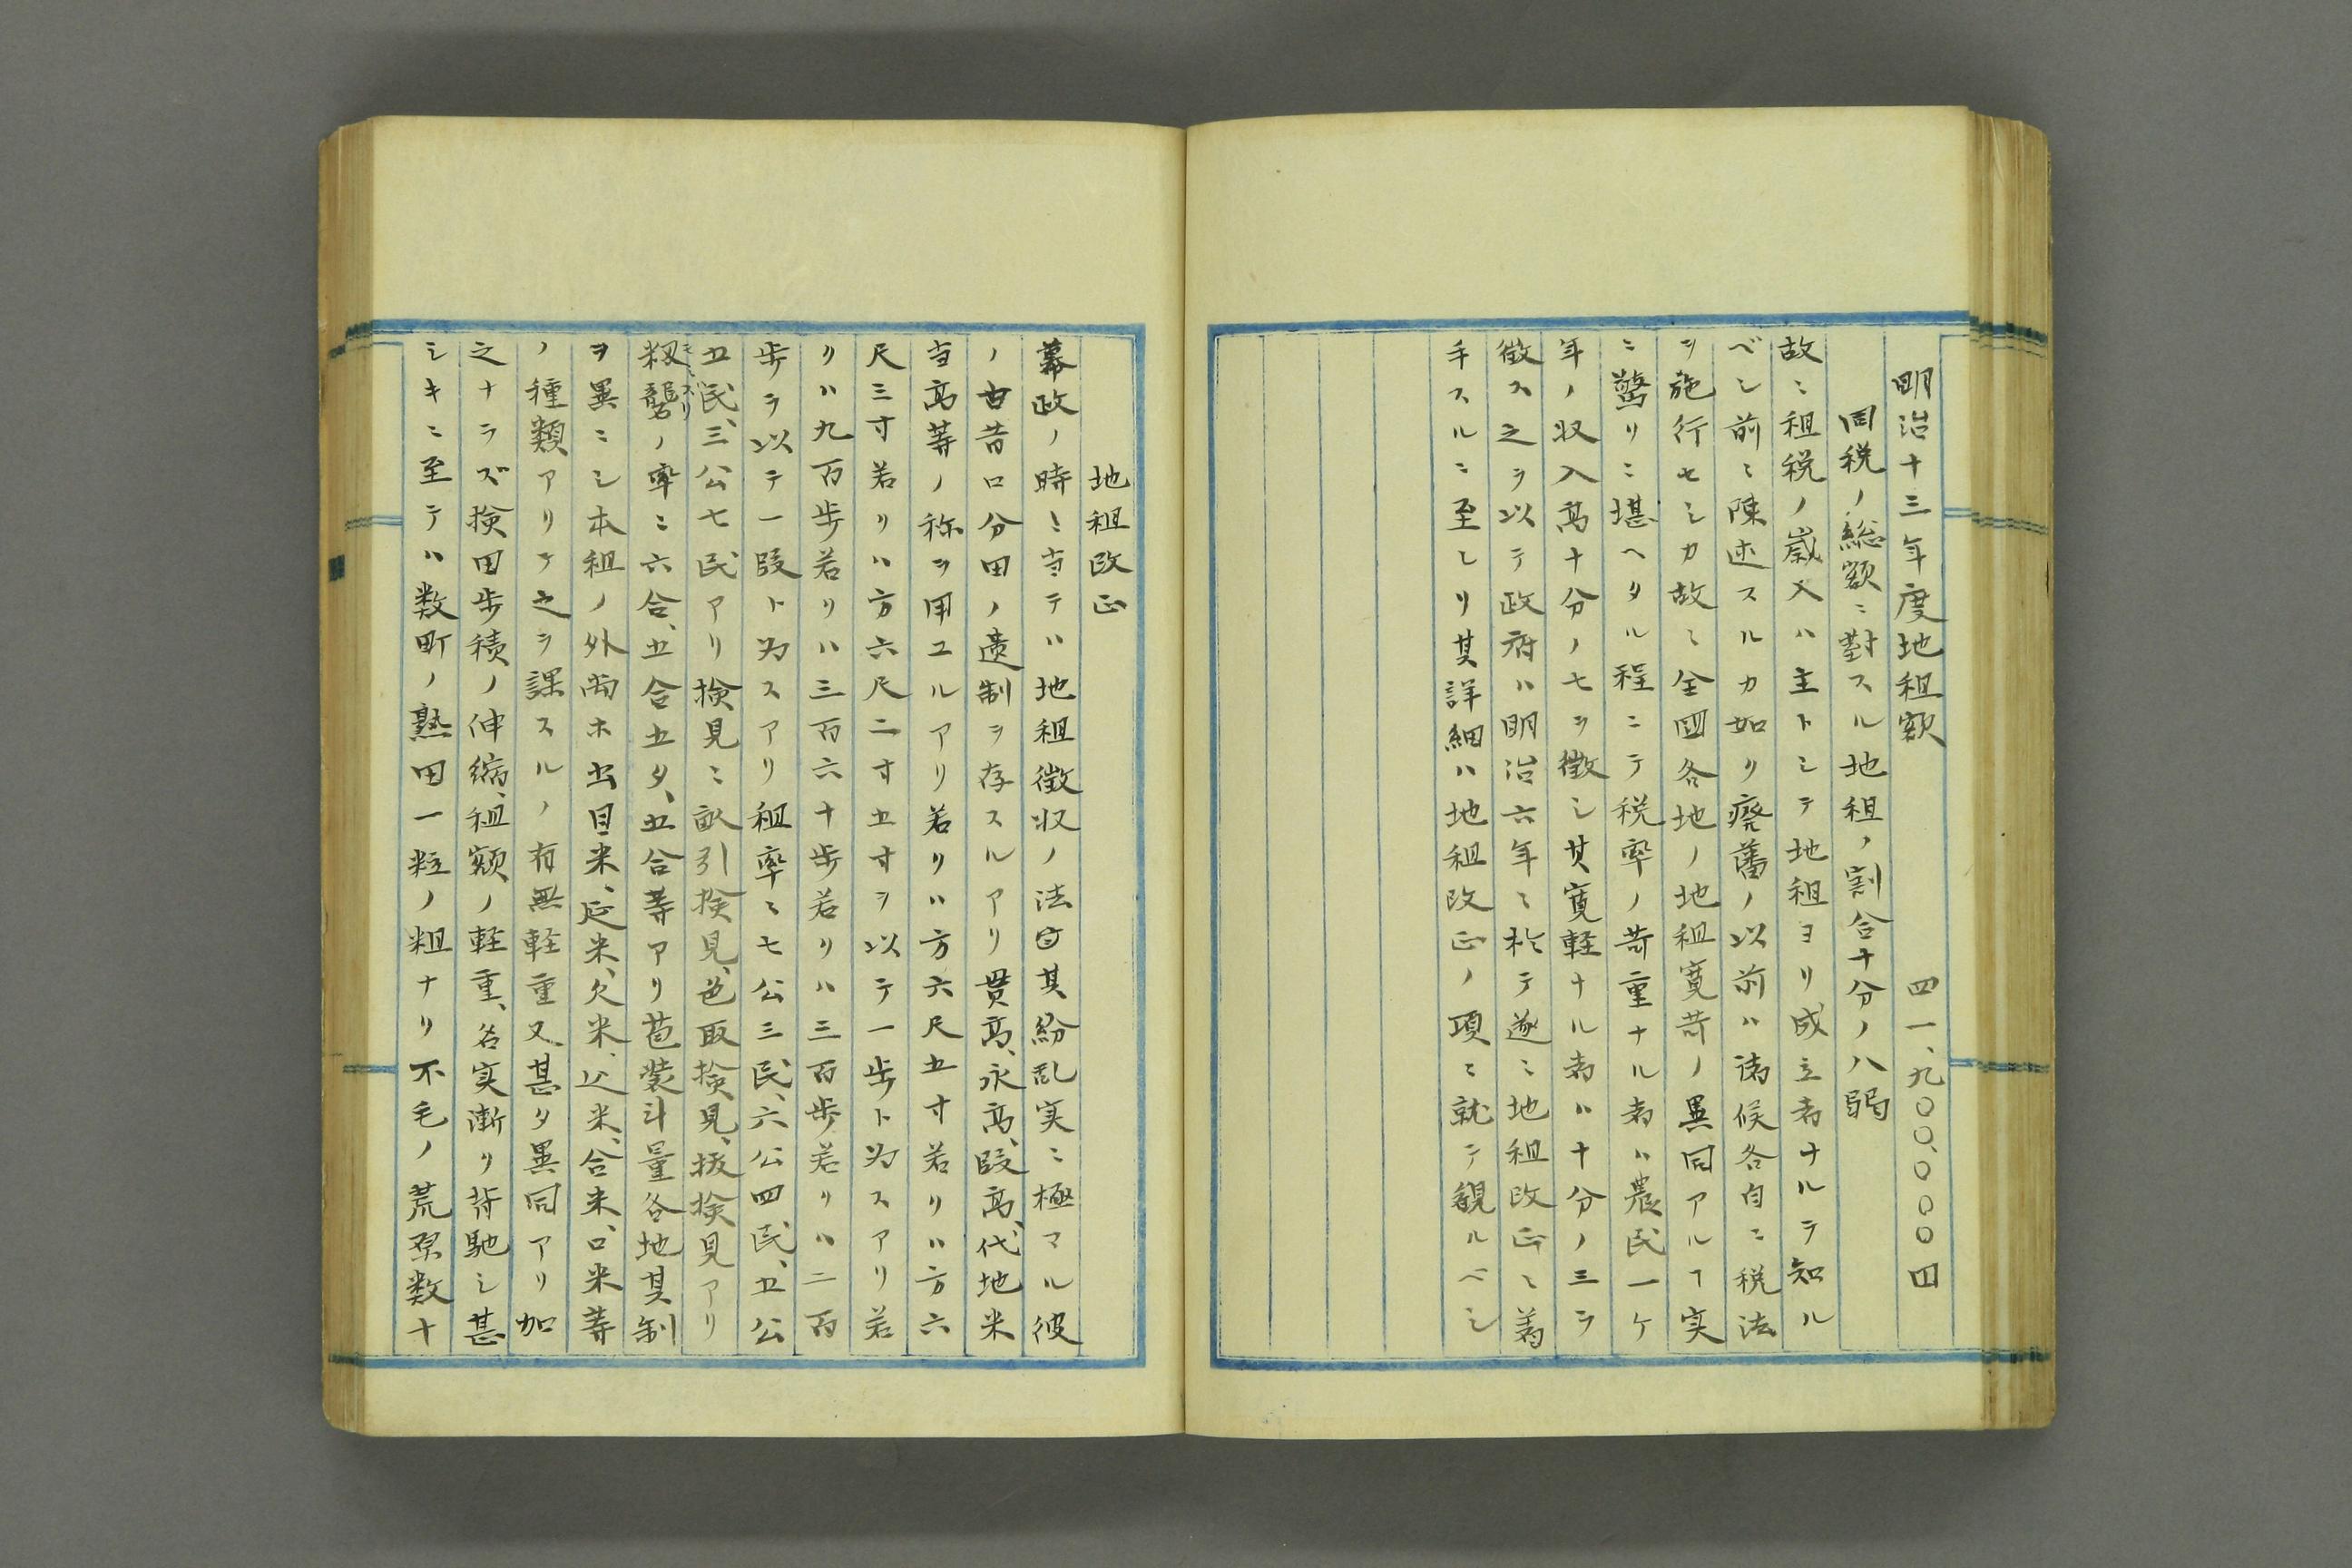 明治十三年度地租額　四一、九〇〇、〇〇〇円
同税ノ総額ニ對スル地租ノ割合十分ノ八弱
故ニ租税ノ歳入ハ主トシテ地租ヨリ成立者ナルヲ知ル
ベシ前ニ陳述スルカ如ク廃藩ノ以前ハ諸侯各自ニ税法
ヲ施行セシカ故ニ全國各地ノ地租寛苛ノ異同アルヿ実
ニ驚クニ堪ヘタル程ニテ税率ノ苛重ナル者ハ農民一ケ
年ノ収入高十分ノ七ヲ徴シ其寛軽ナル者ハ十分ノ三ヲ
徴ス之ヲ以テ政府ハ明治六年ニ於テ遂ニ地租改正ニ着
手スルニ至レリ其詳細ハ地租改正ノ項ニ就テ観ルベシ
地租改正
幕政ノ時ニ方テハ地租徴収ノ法曰其紛乱実ニ極マル彼
ノ古昔口分田ノ遺制ヲ存スルアリ貫高、永高、段高、代地米
当高等ノ称ヲ用ユルアリ若クハ方六尺五寸若クハ方六
尺三寸若クハ方六尺二寸五寸ヲ以テ一歩ト为スアリ若
クハ九百歩若クハ三百六十歩若クハ三百歩若クハ二百
歩ヲ以テ一段ト为スアリ租率ニ七公三民、六公四民、五公
五民、三公七民アリ検見ニ畝引検見、色取検見、抜検見アリ
籾礱ノ率ニ六合、五合五夕、五合等アリ苞装斗量各地其制
ヲ異ニシ本租ノ外尚ホ出目米、延米、欠米、込米、合米、口米等
ノ種類アリテ之ヲ課スルノ有無軽重又甚タ異同アリ加
之ナラズ検田歩積ノ伸縮、租額ノ軽重、名実漸ク背馳シ甚
シキニ至テハ数町ノ熟田一粒ノ粗ナク不毛ノ荒原数十